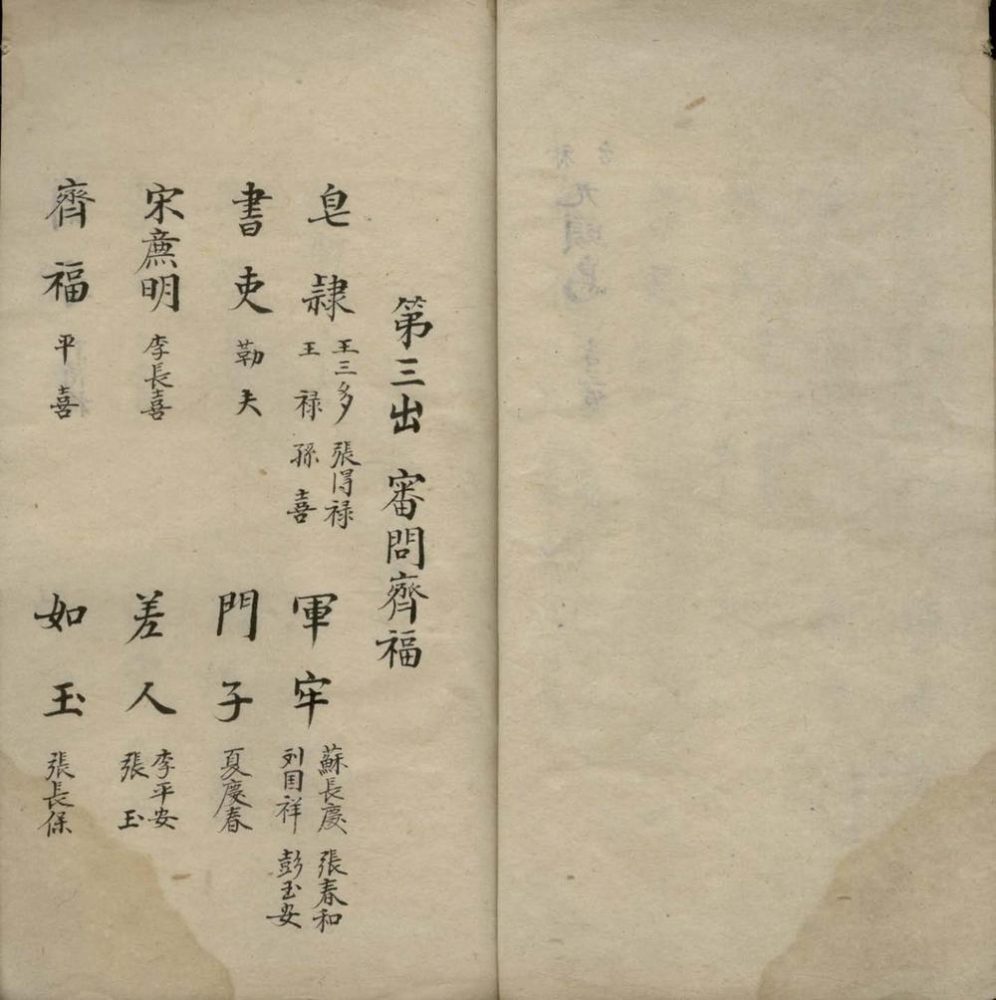 第三出 審問齊福
皂隸
王三多 張得禄
王禄 孫喜
軍牢
蘇長慶 張春和
刘囯祥 彭玉安
書吏 勒夫
門子 夏慶春
宋廉明 李長喜
差人
李平安
張玉
齊福 平喜
如玉 張長保